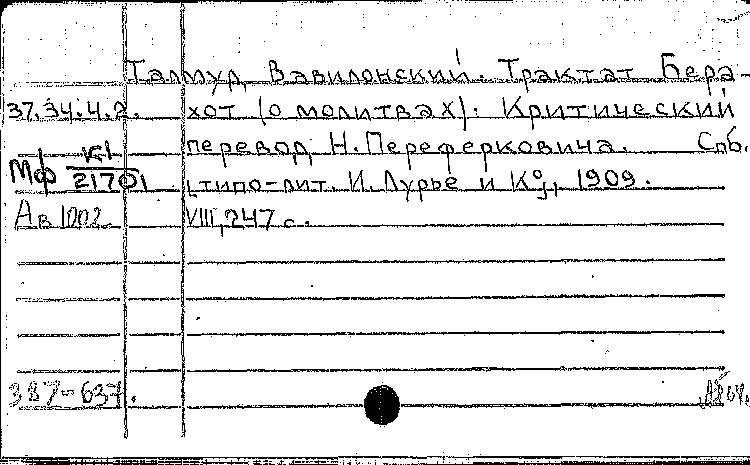 Талмуд Вавилонский. Трактат Бера-
37.34.4.2. хот (о молитвах). Критический
перевод Н. Переферковича. Спб.
Мф К1/21701 ,типо-лит. И. Лурье и К°, 1909.
Ав 1002 VIII, 247 с.
387-637.